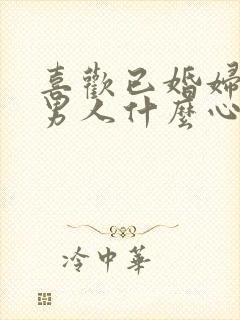 喜歡已婚婦
男人什麼心
冷中華